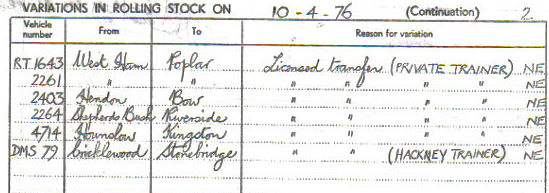 VARIATIONS IN ROLLING STOCK ON 10-4-76 (Continuation) 2
Vehicle number From To Reason for variation
RT 1643 West Ham Poplar Licensed transfer (PRIVATE TRAINER) NE
2261 " " " " " " NE
2403 Hendon Bow " " " " NE
2264 Shepherds Bush Riverside " " " " NE
4714 Hounslow Kingston " " " " NE
DMS 79 Cricklewood Stonebridge " " (HACKNEY TRAINER) NE